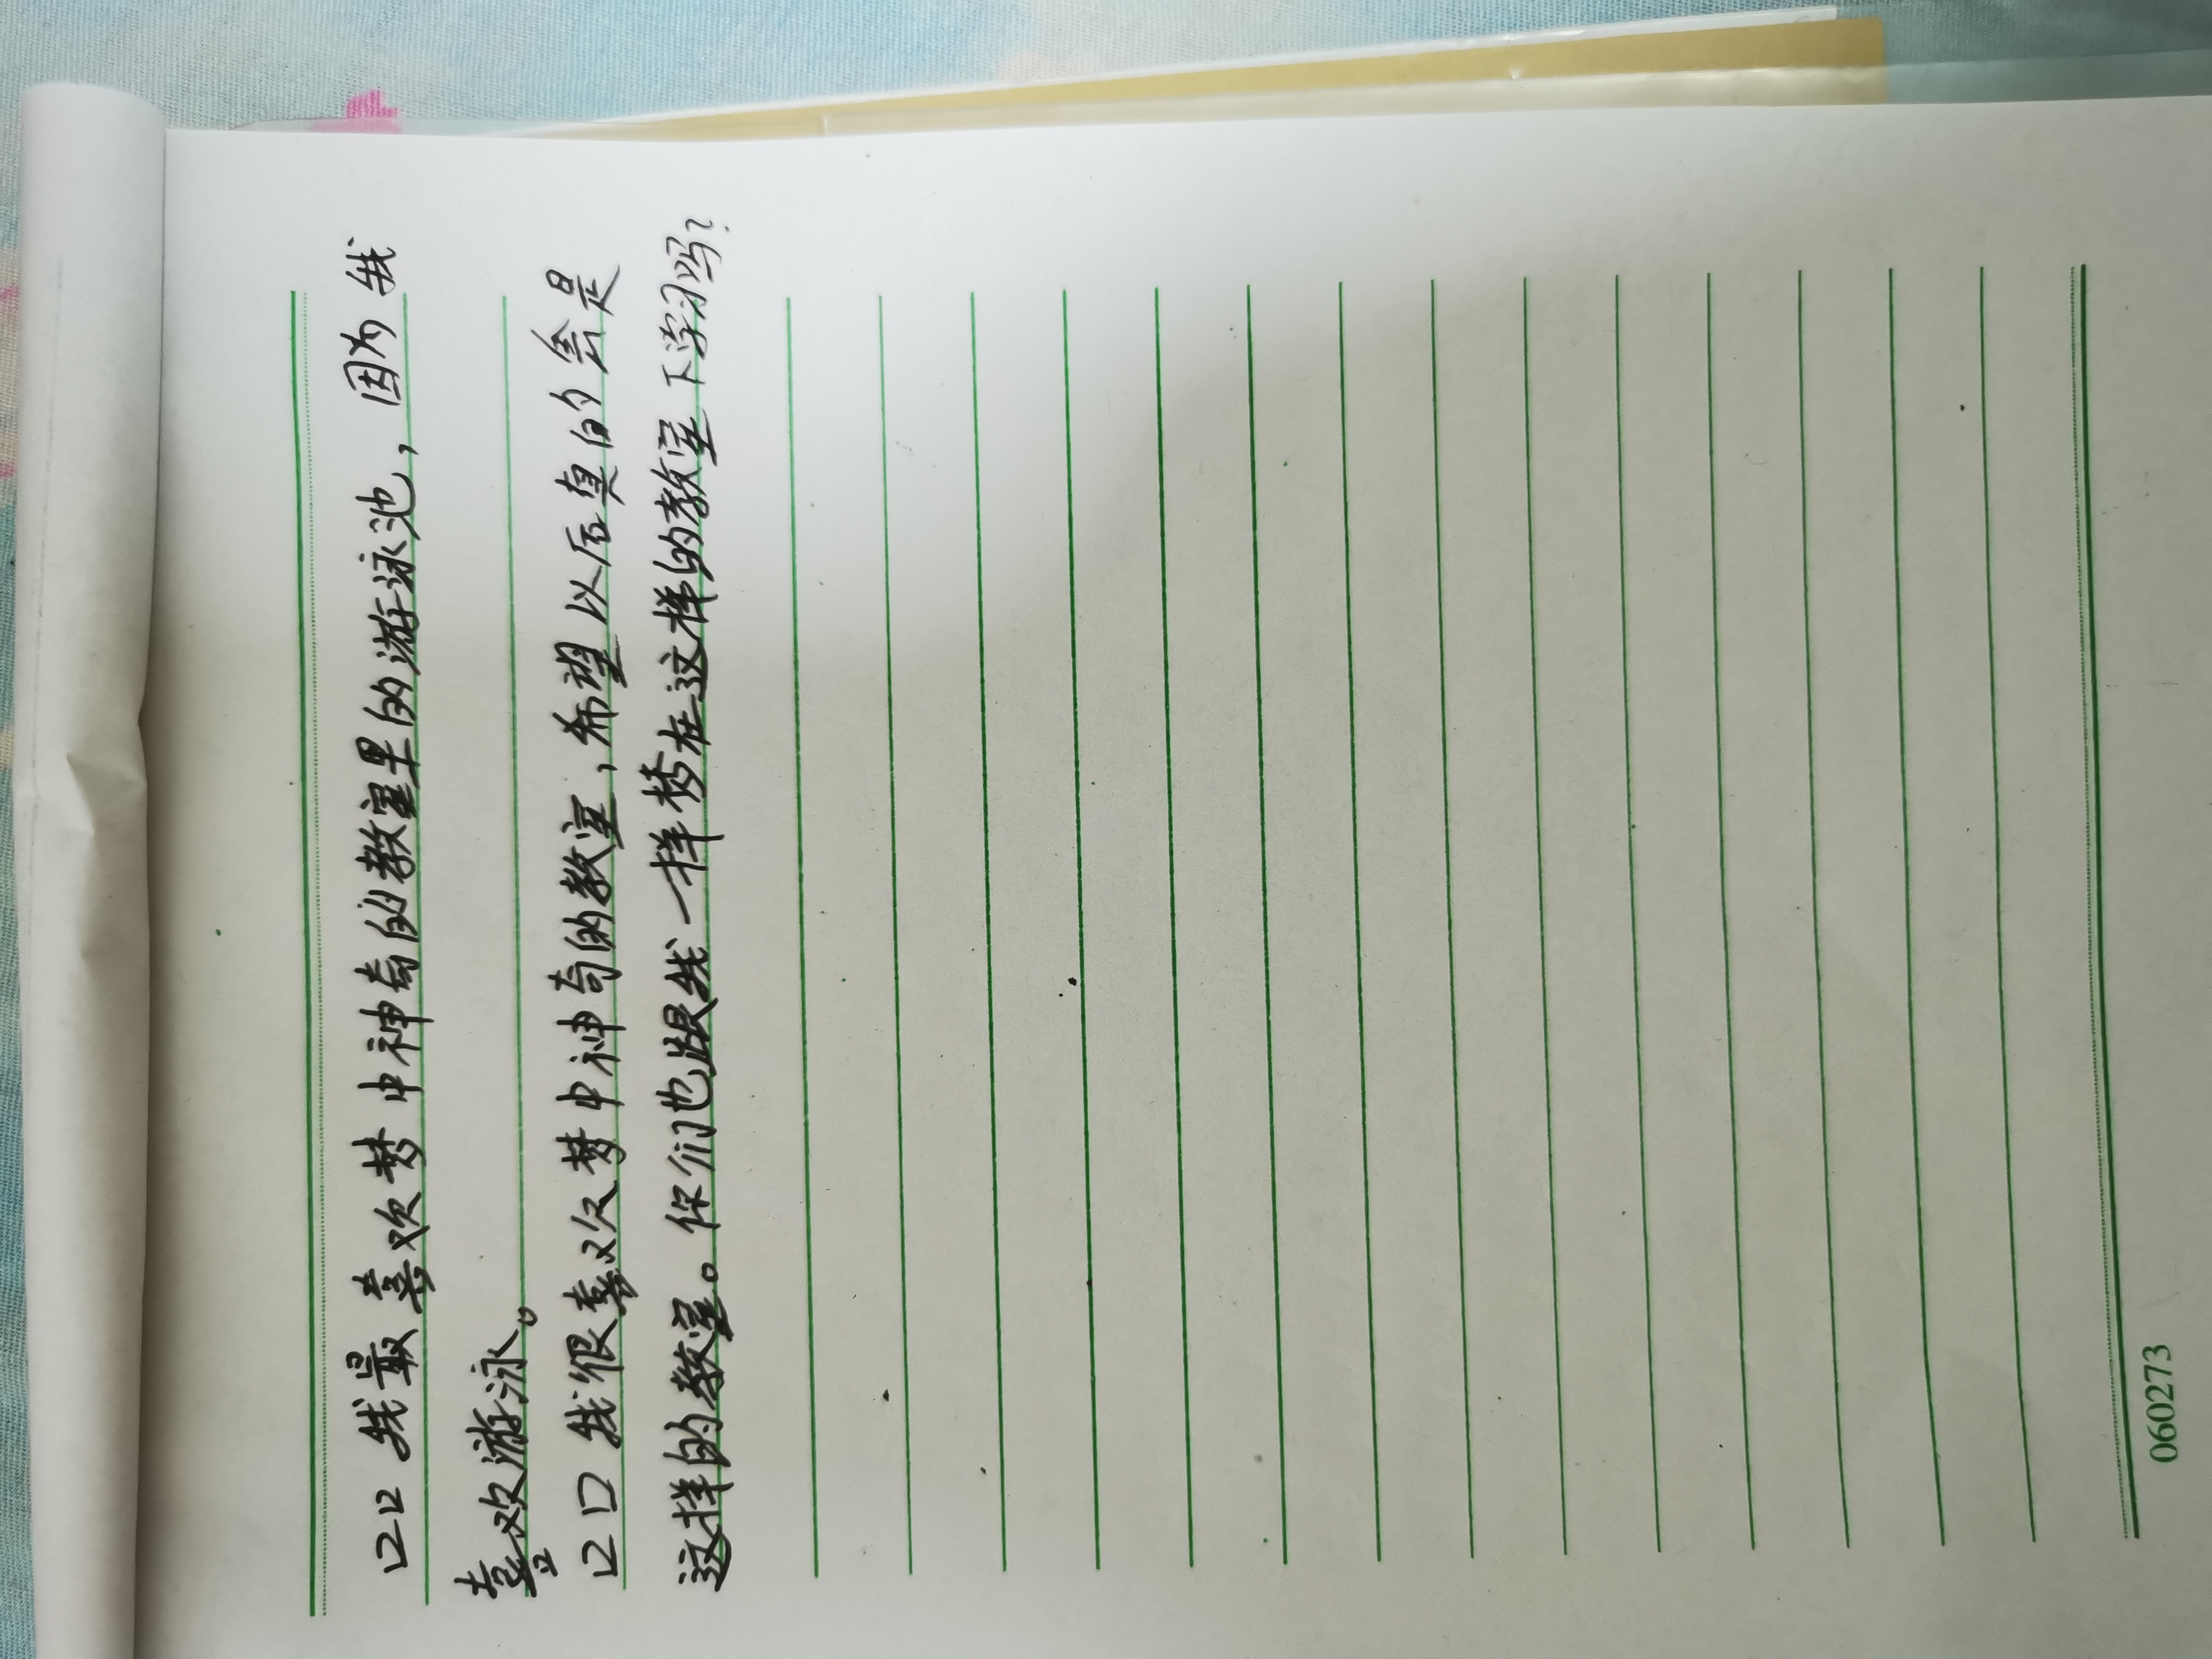 口口我最喜欢梦中神奇的教室里的游泳池，因为我
喜欢游泳。
口口我很喜欢梦中神奇的教室，希望以后真的会是
这样的教室。你们也跟我一样想在这样的教室下学习吗？
060273